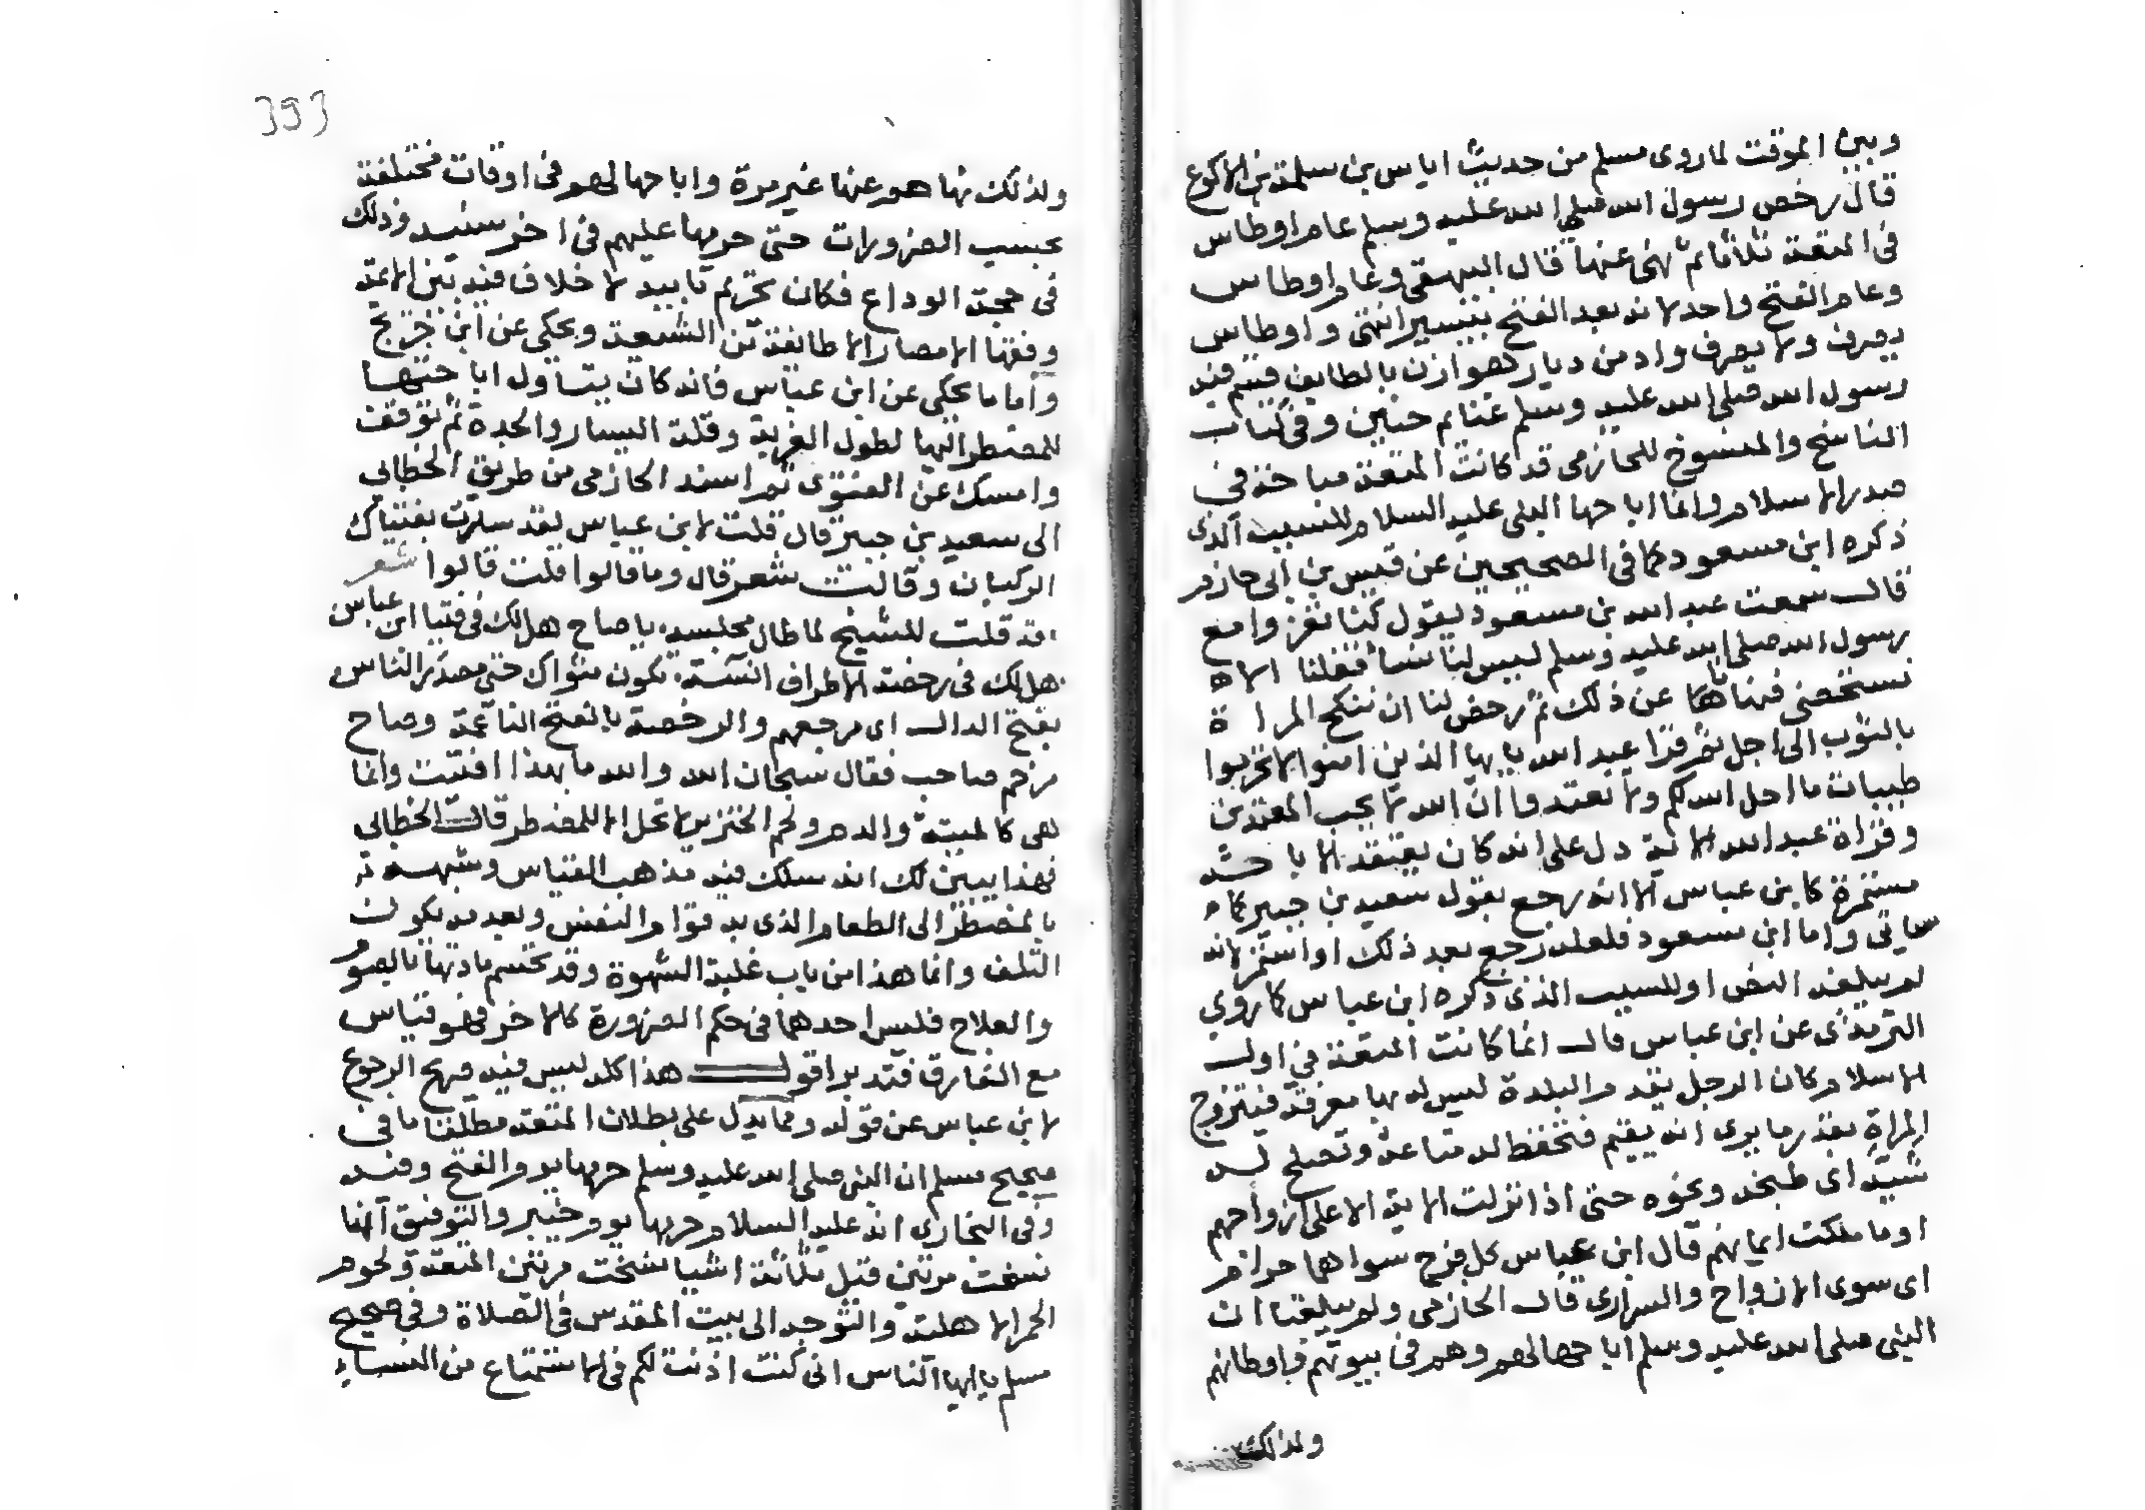 وبين الموقت لما روى مسلم من حديث اياس بن سلمة بن الاكوع
قال رخص رسول الله صلى الله عليه وسلم عام اوطاس
في المتعة ثلاثا ثم نهى عنها قال البيهقي وعام اوطاس
وعام الفتح واحد لانه بعد الفتح بيسير انتهى واوطاس
يصرف ولا يصرف واد من ديار هوازن بالطايف قسم فيه
رسول الله صلى الله عليه وسلم غنايم حنين وفي كتاب
الناسخ والمنسوخ للحازمي قد كانت المتعة مباحة في
صدر الاسلام وانما اباحها النبي عليه السلام للسبب الذى
ذكره ابن مسعود كما في الصحيحين عن قيس بن ابي حازم
قال سمعت عبد الله بن مسعود يقول كنا نغزوا مع
رسول الله صلى الله عليه وسلم ليس لنا نسا فقلنا الا
نستخصى فنهانا عن ذلك ثم رخص لنا ان ننكح المراة
بالثوب الى اجل ثم قرا عبد الله يايها الذين امنوا لا تحرموا
طيبات ما احل الله لكم ولا تعتدوا ان الله لا يحب المعتدين
وقراة عبد الله الاية دل على انه كان يعتقد الاباحة
مستمرة كابن عباس الا انه رجع بقول سعيد بن جبير كما
سياتي واما ابن مسعود فلعله رجع بعد ذلك او استمر لانه
لم يبلغه النص او للسبب الذى ذكره ابن عباس كما روى
الترمذى عن ابن عباس قال انما كانت المتعة في اول
الاسلام كان الرجل يقدم البلدة ليس له بها معرفة فيتزوج
المراة بقدر ما يرى انه يقيم فتحفظ له متاعه وتصلح له
شيه اى طبخه ونحوه حتى اذا نزلت الاية الا على ازواجهم
او ما ملكت ايمانهم قال ابن عباس كل فرج سواهما حرام
اى سوى الازواج والسرارى قال الحازمى ولم يبلغنا ان
النبي صلى الله عليه وسلم اباحها لهم وهم في بيوتهم واوطانهم
ولذلك
393
ولذلك نهاهم عنها غير مرة واباحها لهم في اوقات مختلفة
بحسب الضرورات حتى حرمها عليهم في اخر سنيه وذلك
في حجة الوداع فكان تحريم تابيد لا خلاف فيه بين الايمة
وفقها الامصار الا طايفة من الشيعة ويحكى عن ابن جريج
واما ما يحكى عن ابن عباس فانه كان يتاول اباحتها
للمضطر اليها لطول الغربة وقلة اليسار والجدة ثم توقف
وامسك عن الفتوى ثم اسند الحازمى من طريق الخطابي
الى سعيد بن جبير قال قلت لابن عباس لقد سارت بفتياك
الركبان وقالت شعر قال وما قالوا قلت قالوا شعر
قد قلت للشيخ لما طال مجلسه يا صاح هل لك في فتيا ابن عباس
هل لك في رخصة الاطراف انسة تكون مثواك حتى مصدر الناس
بفتح الدال اى مرجعهم والرخصة بالفتح الناعمة وصاح
مرخم صاحب فقال سبحان الله والله ما بهذا افتيت وانما
هى كالميتة والدم ولحم الخنزير لا تحل الا للمضطر قال الخطابي
فهذا يبين لك انه سلك فيه مذهب القياس وشبهه
بالمضطر الى الطعام الذى به قوام النفس وبعدمه يكون
التلف وانما هذا من باب غلبة الشهوة وقد تحسم مادتها بالصوم
والعلاج فليس احدهما في حكم الضرورة كالاخر فهو قياس
مع الفارق فتدبر اقول هذا كله ليس فيه صريح الرجوع
لابن عباس عن قوله ومما يدل على بطلان المتعة مطلقا ما في
صحيح مسلم ان النبي صلى الله عليه وسلم حرمها يوم الفتح وفيه
وفي البخارى انه عليه السلام حرمها يوم خيبر والتوفيق انها
نسخت مرتين قيل ثلاثة اشيا نسخت مرتين المتعة ولحوم
الحمر الاهلية والتوجه الى بيت المقدس في الصلاة وفي صحيح
مسلم يا ايها الناس اني كنت اذنت لكم في الاستمتاع من النساء